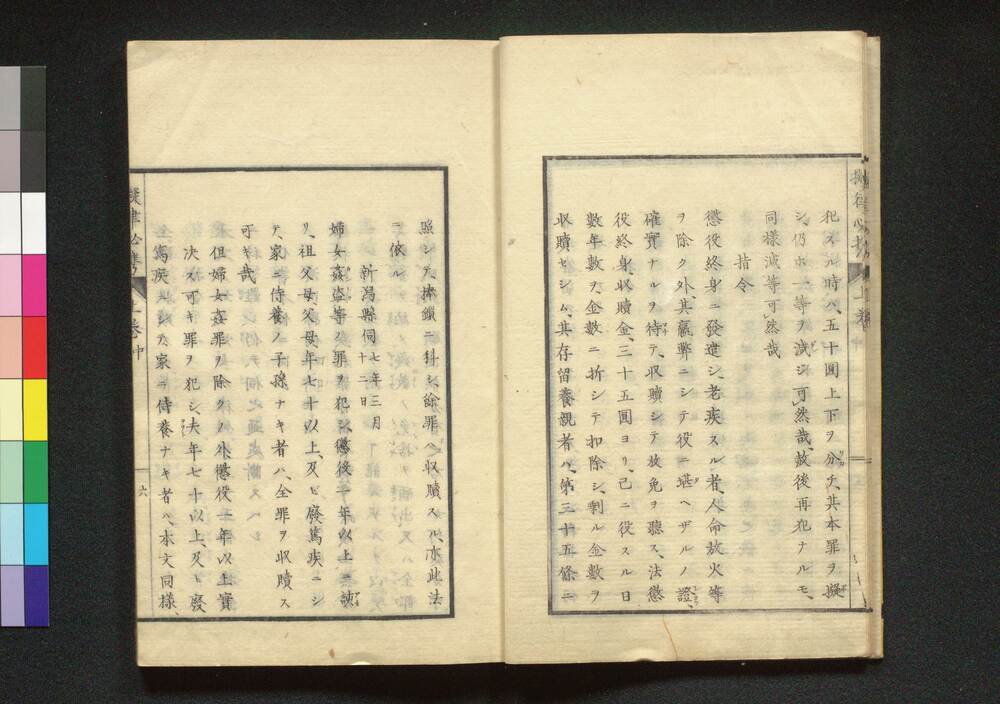 犯スル時ハ、五十圓上下ヲ分チ、其本罪ヲ擬
シ、仍ホ一等ヲ減シ可然哉、故後再犯ナルモ、
同樣減等可然哉
指令
懲役終身ニ發遣シ、老疾スル者、人命放火等
ヲ除ク外、其羸弊ニシテ役ニ堪ヘザルノ證、
確實ナルヲ待テ、收贖シテ放免ヲ聽ス、法懲
役終身收贖金、三十五圓ヨリ、已ニ役スル日
數年數ヲ、金數ニ折シテ扣除シ、剩ル金數ヲ
收贖セシム、其存留養親者ハ、第三十五條ニ
照シテ、捧鎖ニ科シ餘罪ハ收贖スル、亦此法
ニ依ル
新潟縣伺 七年三月
十二日
婦女姦盜等ノ罪ヲ犯シ、懲役一年以上ニ該
リ、祖父母父母年七十以上、及ビ廢篤疾ニシ
テ、家ニ侍養ノ子孫ナキ者ハ、全罪ヲ收贖ス
可キ哉
但婦女姦罪ヲ除クノ外、懲役一年以上實
決ス可キ罪ヲ犯シ、夫年七十以上、及ビ廢
篤疾ニシテ、家ニ侍養ナキ者ハ、本文同樣、
六